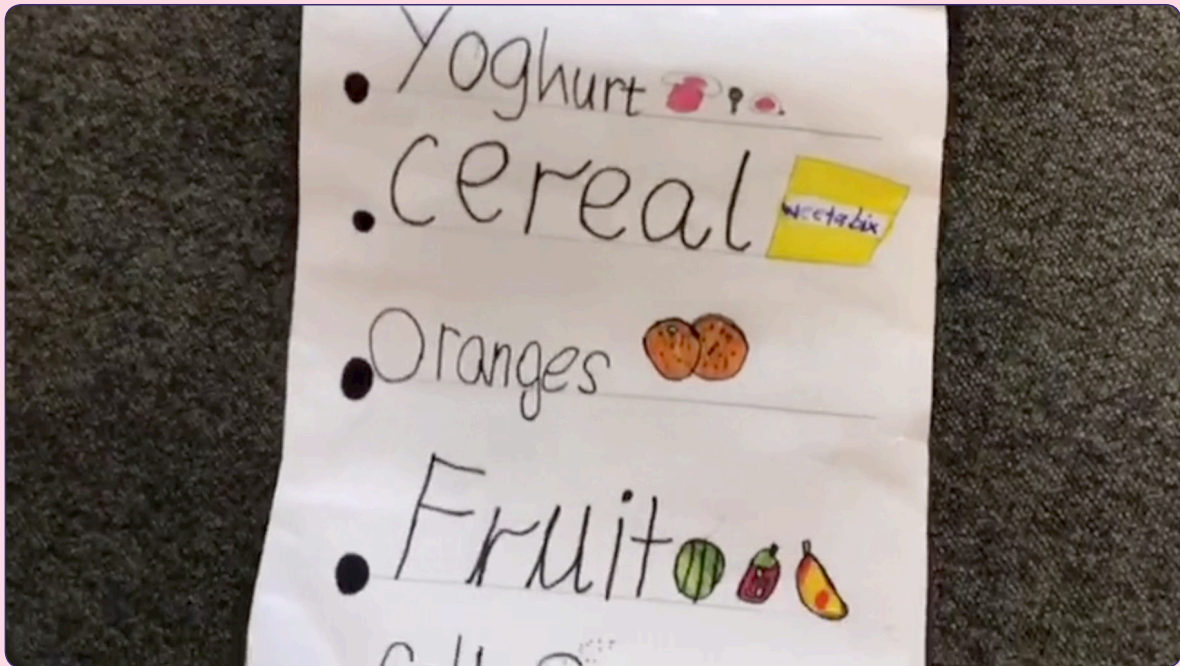 • Yoghurt
• cereal weetabix
• Oranges
• Fruit